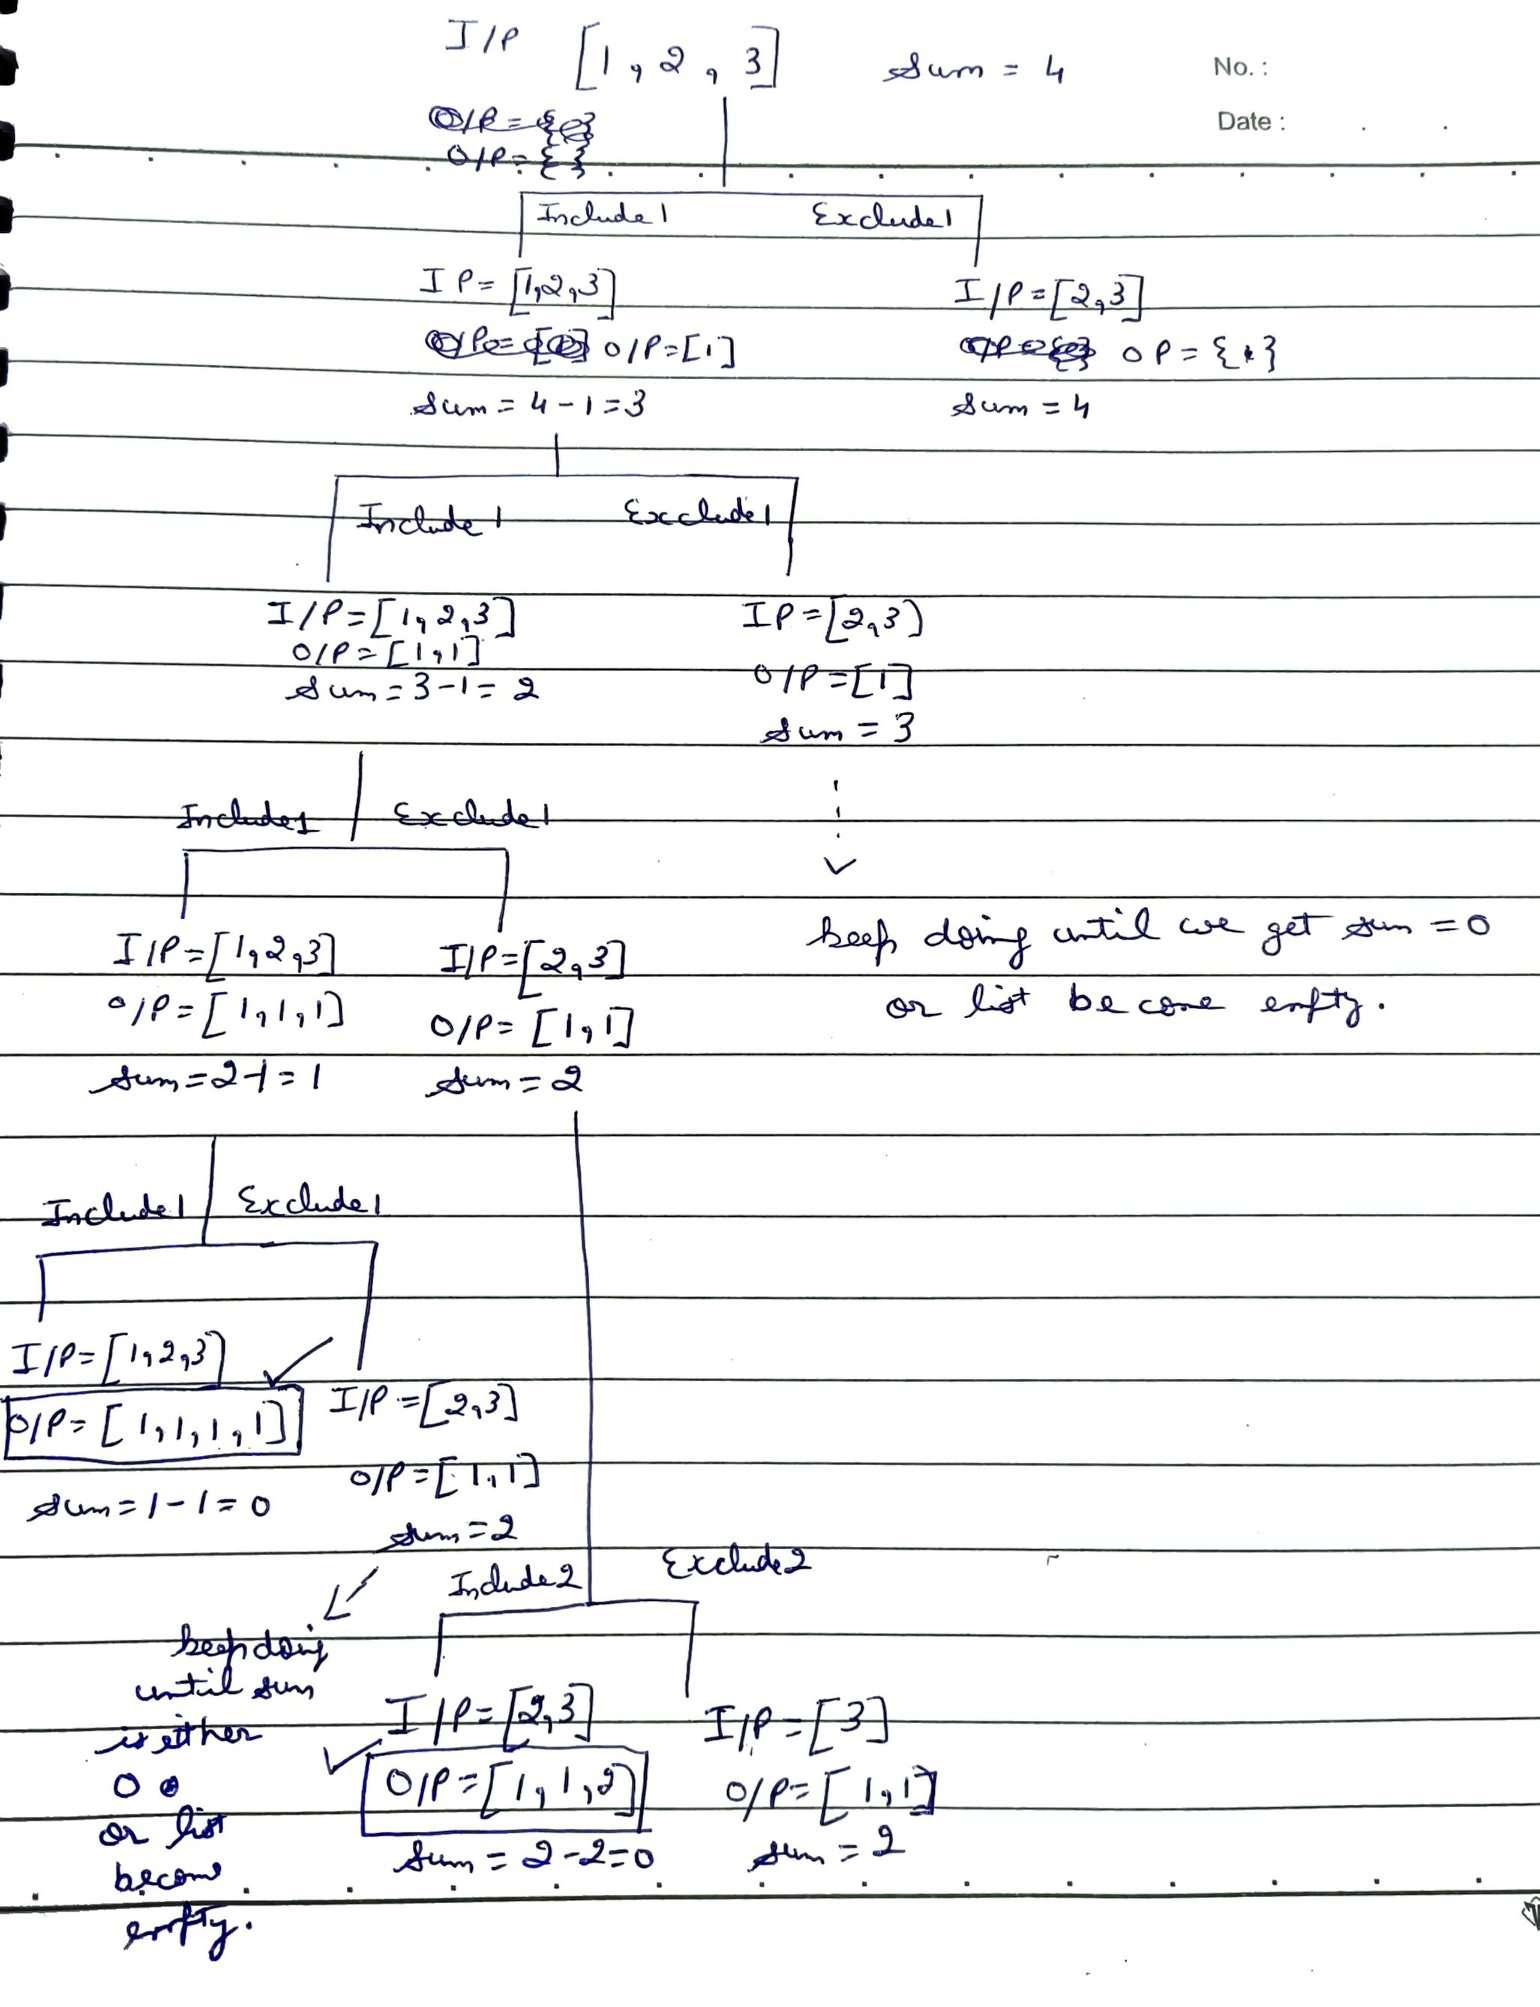 I/P [1, 2, 3] Sum = 4 No. :
Date :
O/P = { }
Include 1 Exclude 1
I P = [1,2,3] I/P = [2,3]
O/P = [1] O P = { }
Sum = 4 - 1 = 3 Sum = 4
Include 1 Exclude 1
I/P = [1, 2, 3] I P = [2,3]
O/P = [1,1] O/P = [1]
Sum = 3 - 1 = 2 Sum = 3
Include 1 Exclude 1
I/P = [1,2,3] I/P = [2,3] keep doing until we get sum = 0
O/P = [1,1,1] O/P = [1,1] or list become empty.
Sum = 2 - 1 = 1 Sum = 2
Include 1 Exclude 1
I/P = [1,2,3] I/P = [2,3]
O/P = [1,1,1,1] O/P = [1,1]
Sum = 1 - 1 = 0 Sum = 2
Include 2 Exclude 2
keep doing
until sum
is either
0
or list
become
empty.
I/P = [2,3] I/P = [3]
O/P = [1,1,2] O/P = [1,1]
Sum = 2 - 2 = 0 Sum = 2